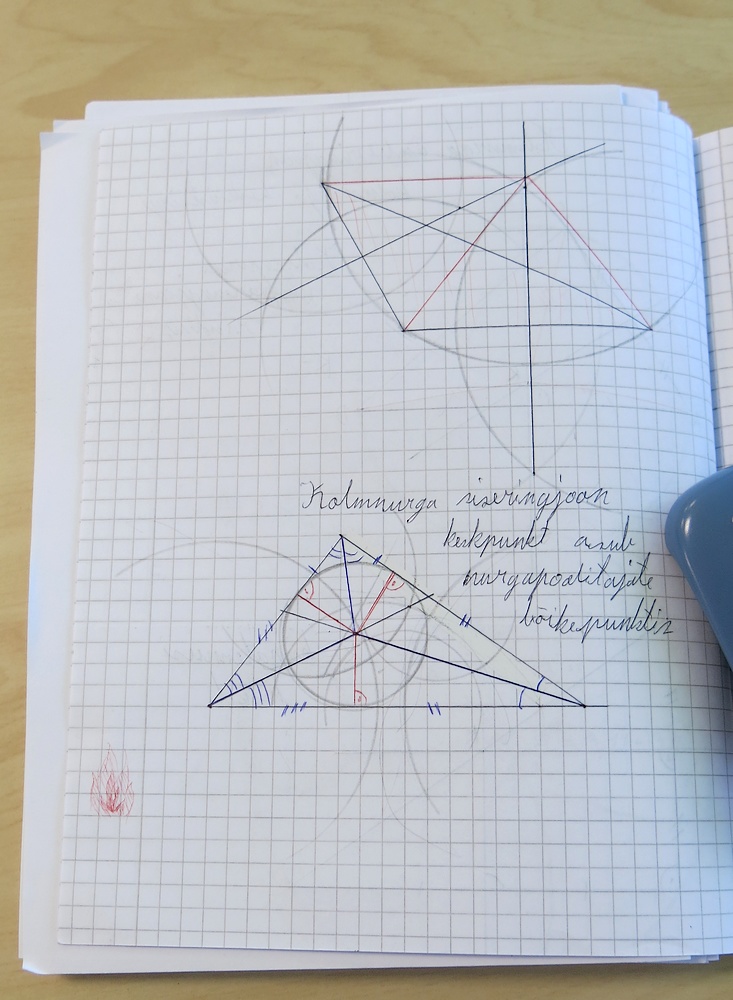 Kolmnurga siseringjoon
keskpunkt asub
nurgapoolitajate
lõikepunktis